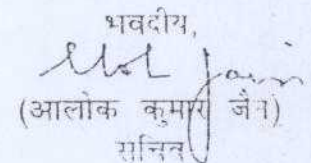 भवदीय,
(आलोक कुमार जैन)
सचिव